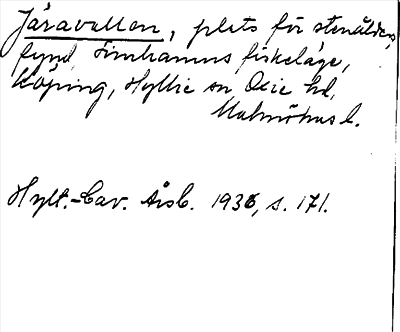 Järavallen, plats för stenålders
fynd, Limhamns fiskeläge,
Köping, Hyllie sn, Oxie hd,
Malmöhus l.
Hylt.-Cav. Årsb. 1936, s. 171.